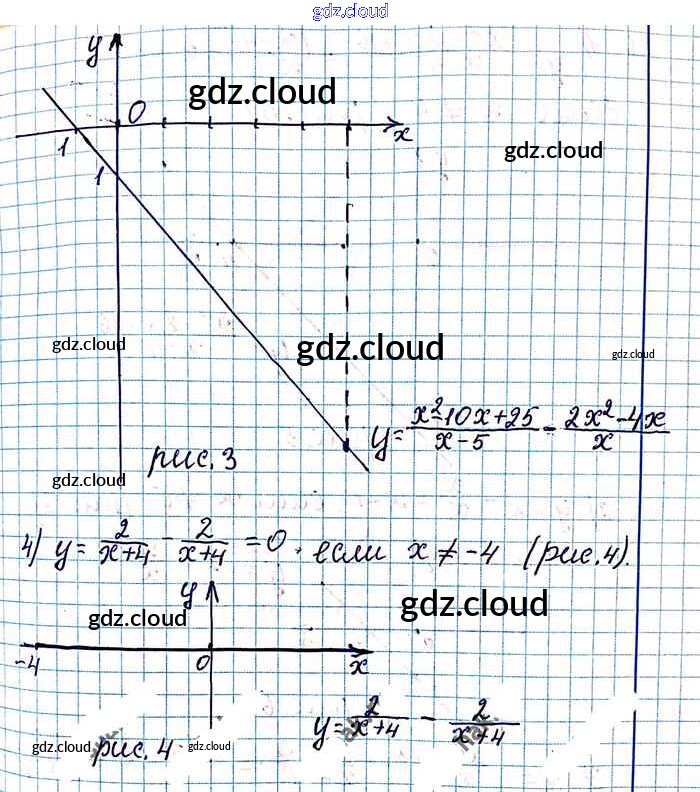 gdz.cloud
y
gdz.cloud
0
x
1
gdz.cloud
1
gdz.cloud
gdz.cloud
gdz.cloud
y = \frac{x^2-10x+25}{x-5} - \frac{2x^2-4x}{x}
рис. 3
gdz.cloud
4) y = \frac{2}{x+4} - \frac{2}{x+4} = 0, если x ≠ -4 (рис. 4).
y
gdz.cloud
gdz.cloud
-4
0
x
y = \frac{2}{x+4} - \frac{2}{x+4}
gdz.cloud рис. 4 gdz.cloud